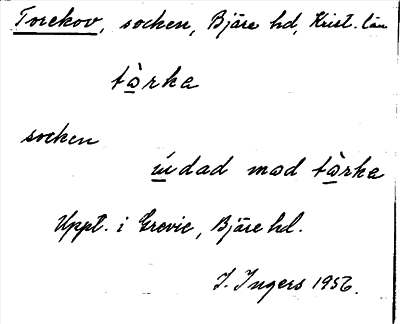 Torekov, socken, Bjäre hd, Krist. län
tàrka
socken
údad mad tàrka
Uppt. i Grevie, Bjäre hd.
I. Ingers 1956.